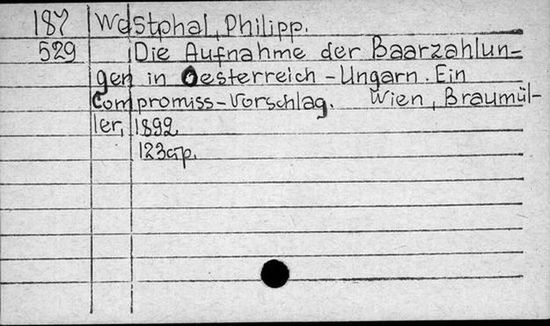 187 Westphal, Philipp.
529 Die Aufnahme der Baarzahlun-
gen in Oesterreich-Ungarn. Ein
Compromiss-Vorschlag. Wien, Braumül-
ler, 1892